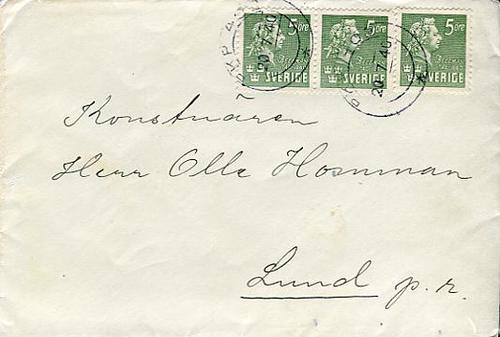 5 öre 5 öre 5 öre
SVERIGE SVERIGE SVERIGE
20.7.40 20.7.40
Konstnären
Herr Olle Hommman
Lund p.r.